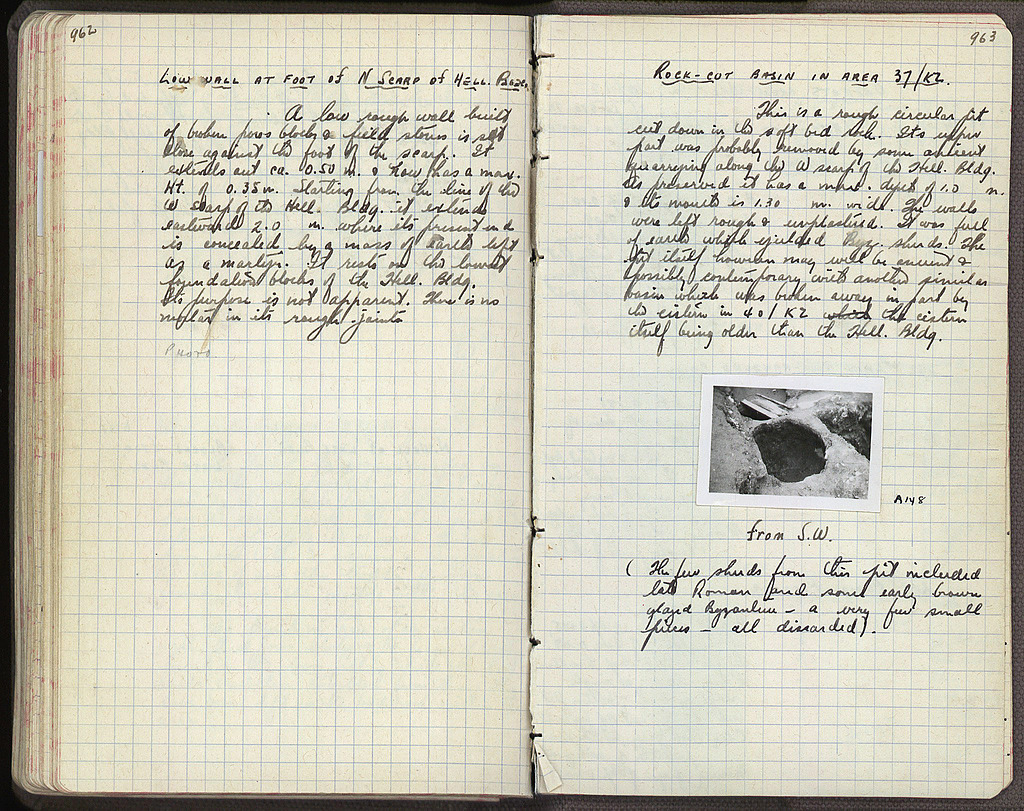 962
LOW WALL AT FOOT OF N SCARP OF HELL. BLDG.
A low rough wall built
of broken poros blocks & field stones is set
close against the foot of the scarp. It
extends out ca. 0.50 m. & now has a max.
Ht. of 0.35 m. Starting from the line of the
W scarp of the Hell. Bldg. it extends
eastwards 2.0 m. where its present end
is concealed by a mass of earth left
as a martyr. It rests on the lowest
foundation blocks of the Hell. Bldg.
Its purpose is not apparent. There is no
mortar in its rough joints
PHOTO
963
ROCK-CUT BASIN IN AREA 37/KZ.
This is a rough circular pit
cut down in the soft bed rock. Its upper
part was probably removed by some ancient
quarrying along the W scarp of the Hell. Bldg.
As preserved it has a max. depth of 1.0 m.
& its mouth is 1.30 m. wide. The walls
were left rough & unplastered. It was full
of earth which yielded Byz. sherds. The
pit itself however may well be ancient &
possibly contemporary with another similar
basin which was broken away in part by
the cistern in 40/KZ which the cistern
itself being older than the Hell. Bldg.
A148
from S.W.
( The few sherds from this pit included
late Roman and some early brown
glazed Byzantine - a very few small
pieces - all discarded).